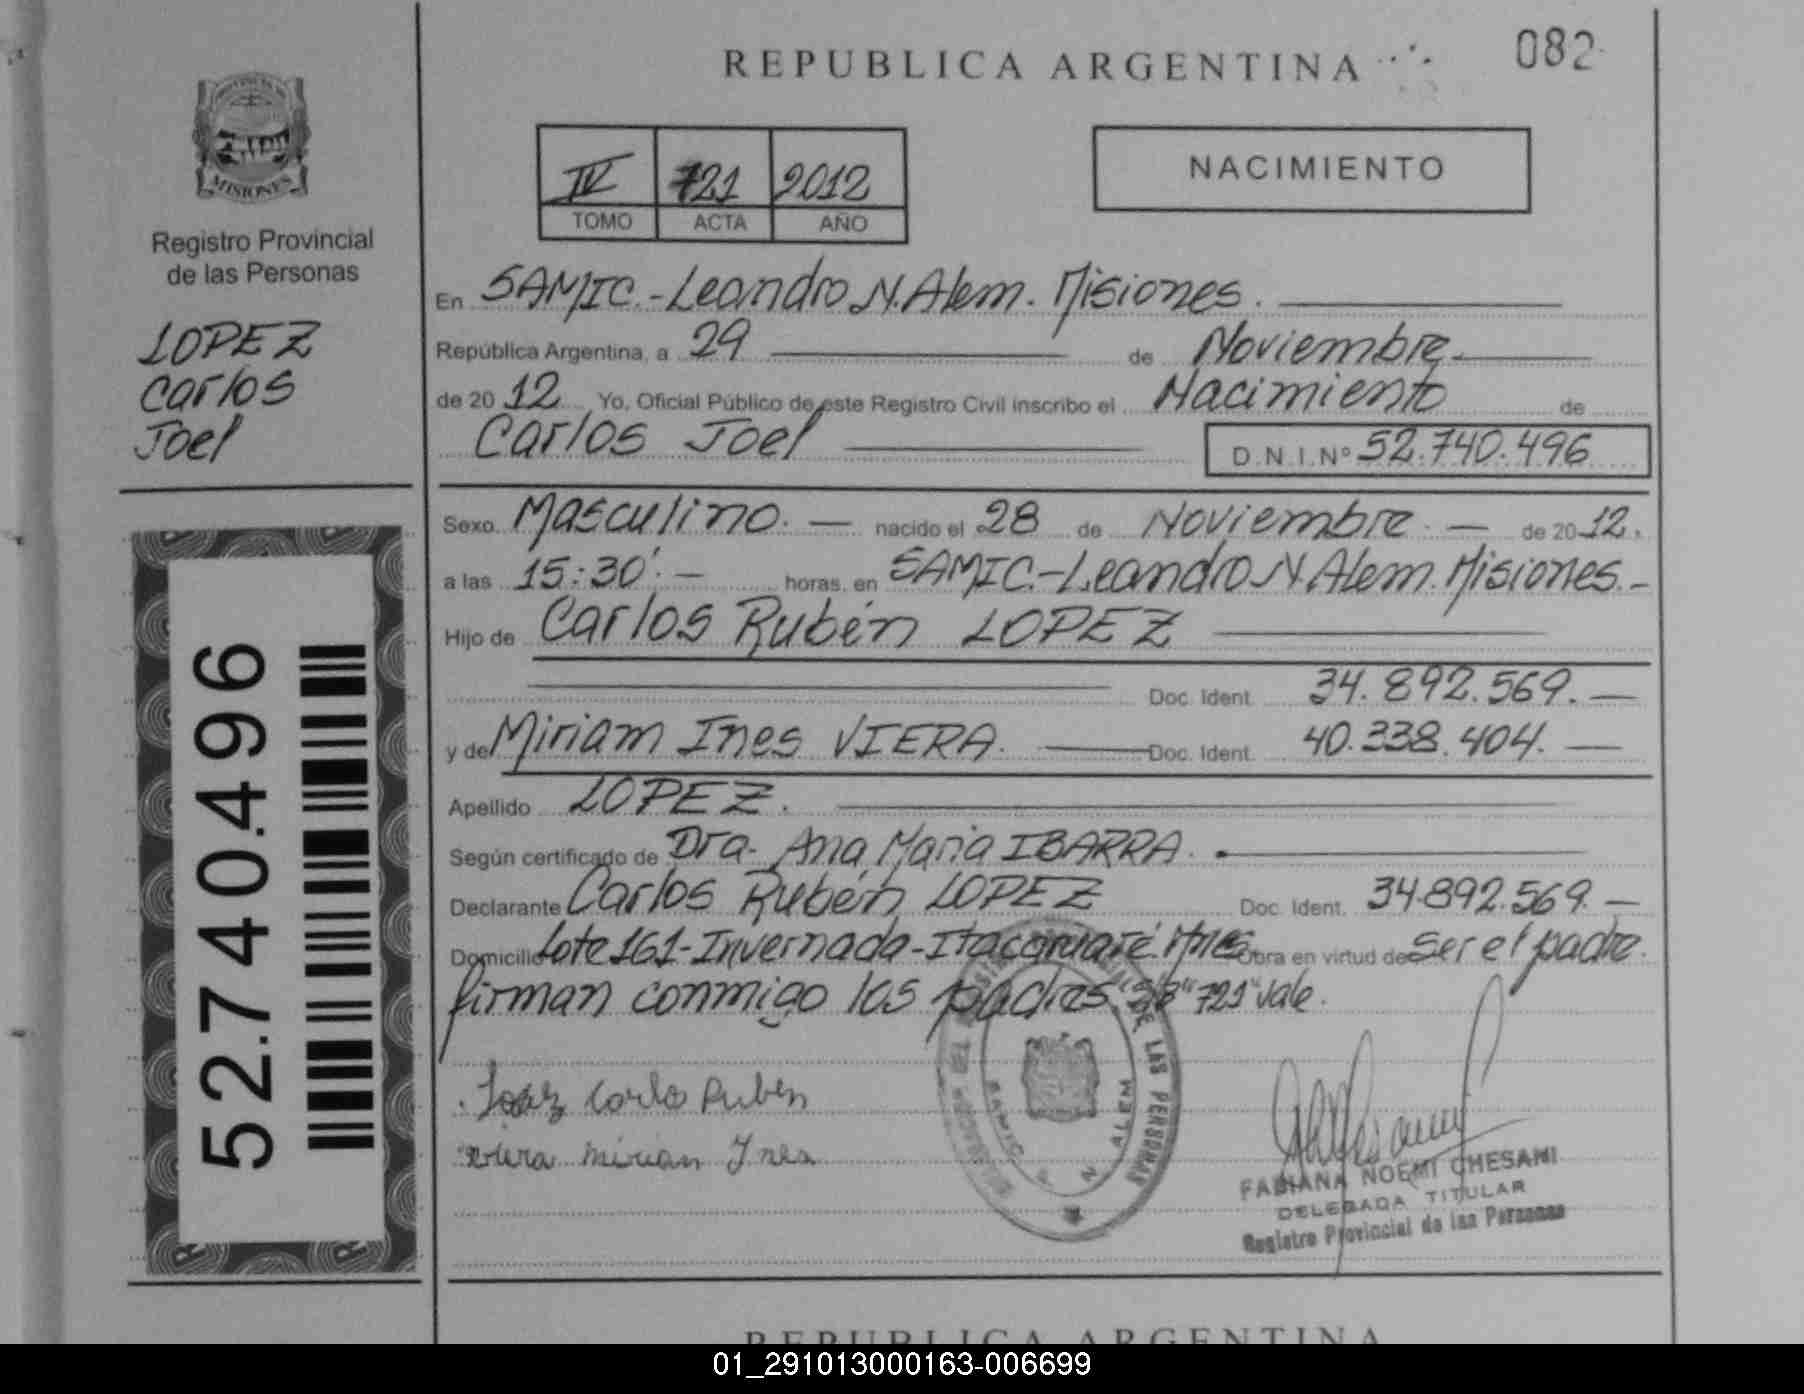 REPUBLICA ARGENTINA
082
PROVINCIA DE
MISIONES
Registro Provincial
de las Personas
LOPEZ
Carlos
Joel
IV 721 2012
TOMO ACTA AÑO
NACIMIENTO
En SAMIC.-Leandro N. Alem. Misiones.
República Argentina, a 29 de Noviembre
de 20 12 Yo, Oficial Público de este Registro Civil inscribo el Nacimiento de
Carlos Joel D.N.I.Nº 52.740.496
Sexo Masculino. — nacido el 28 de Noviembre. — de 20 12.
a las 15:30'.- horas, en SAMIC.-Leandro N. Alem. Misiones.-
Hijo de Carlos Rubén LOPEZ
Doc. Ident. 34.892.569.—
y de Miriam Ines VIERA. Doc. Ident. 40.338.404.—
Apellido LOPEZ.
Según certificado de Dra. Ana Maria IBARRA.
Declarante Carlos Rubén LOPEZ Doc. Ident. 34.892.569.—
Domicilio Lote 161-Invernada-Itacaruaré. Mnes Obra en virtud de ser el padre.
firman conmigo los padres "721" Vale.
52.740.496
Lopez Carlo Ruben
Viera Mirian Ines
DE LAS PERSONAS
SAMIC
N ALEM
FABIANA NOEMI CHESANI
DELEGADA TITULAR
Registro Provincial de las Personas
REPUBLICA ARGENTINA
01_291013000163-006699